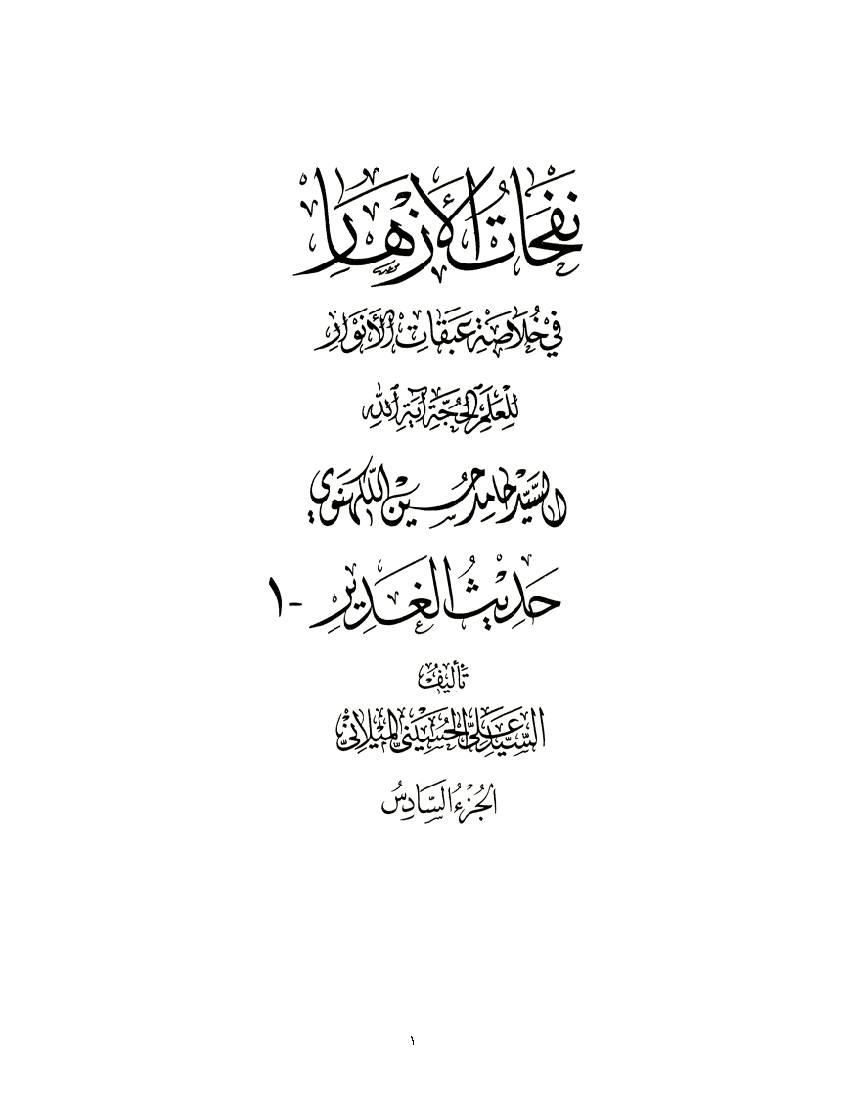 نفحات الأزهار
في خلاصة عبقات الأنوار
للعلم الحجة آية الله
السيد حامد حسين اللكهنوي
حديث الغدير - ١
تأليف
السيد علي الحسيني الميلاني
الجزء السادس
١